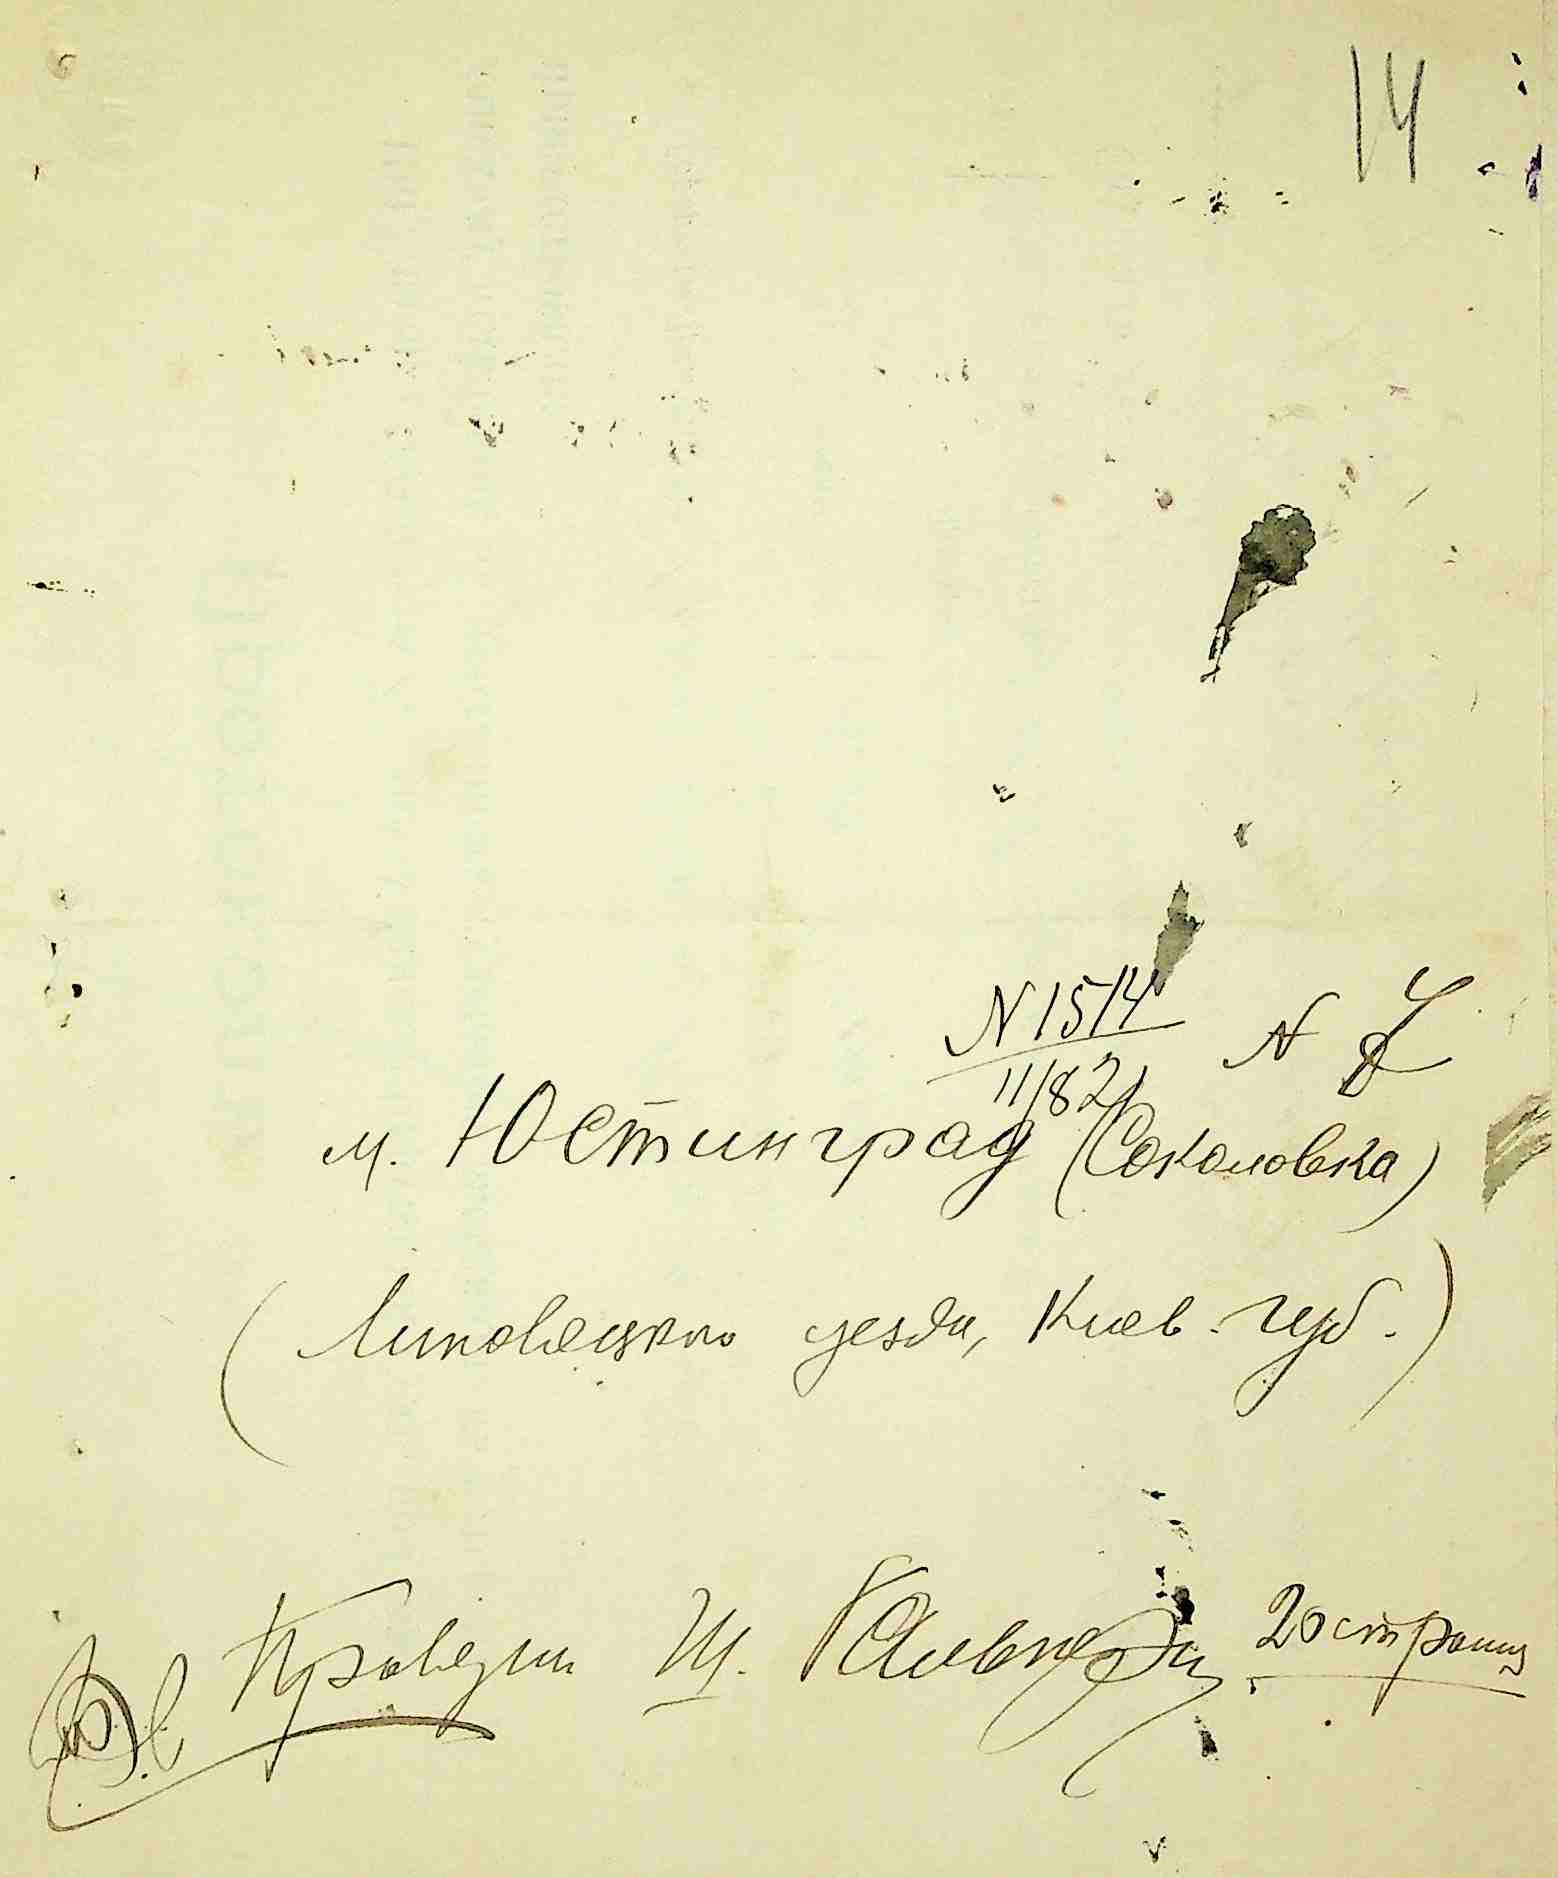 14
N 1514 N
11/82
м. Юстинград (Соколовка)
(Липовецкого уезда, Киев. губ.)
Проверил Ш. 20 страниц